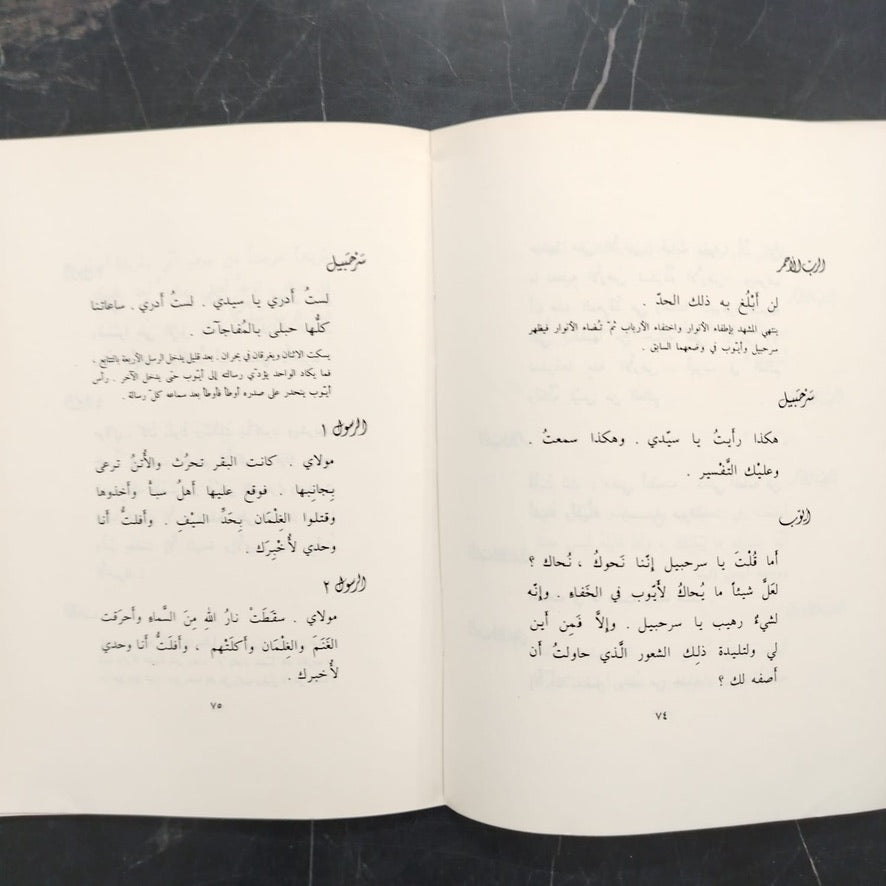 الرب الأحمر
لن أَبْلُغ به ذلك الحدّ .
ينتهي المشهد بإطفاء الأنوار واختفاء الأرباب ثمّ تُضاء الأنوار فيظهر
سرحبيل وأيّوب في وضعهما السابق .
سَرْحَبيل
هكذا رأيتُ يا سيّدي . وهكذا سمعتُ .
وعليْك التَّفْسير .
ايّوب
أما قُلْتَ يا سرحبيل إنّنا نَحوكُ ، نُحاك ؟
لعَلَّ شيئاً ما يُحاكُ لأيّوب في الخَفاءِ . وإنّه
لشيءٌ رهيب يا سرحبيل . وإلاَّ فَمِن أين
لي ولتليدة ذلِك الشعور الَّذي حاولتُ أن
أصفه لك ؟
٧٤
سَرْحَبيل
لستُ أدري يا سيدي . لستُ أدري . ساعاتنا
كلُّها حبلى بالمُفاجآت .
يسكت الاثنان ويغرقان في بحران . بعد قليل يدخل الرسل الأربعة بالتتابع ،
فما يكاد الواحد يؤدّي رسالته إلى أيّوب حتّى يدخل الآخر . رأس
أيّوب ينحدر على صدره أوطأ فأوطأ بعد سماعه كلّ رسالة .
الرسول ١
مولاي . كانت البقر تحرُث والأُتنُ ترعى
بجانِبها . فوقع عليها أهلُ سبأ وأخذوها
وقتلوا الغِلْمان بِحَدِّ السيْفِ . وأفلتُّ أنا
وحدي لأُخْبِرَك .
الرسول ٢
مولاي . سقَطَتْ نارُ اللهِ مِنَ السَّماءِ وأحرَقت
الغَنَمَ والغِلْمان وأكلَتْهم . وأفلَتُّ أنا وحدي
لأُخبرك .
٧٥